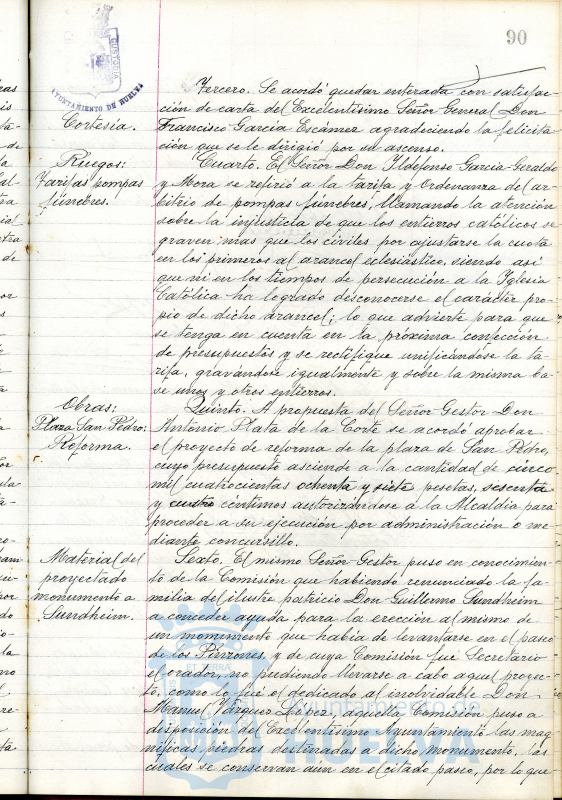 90
CUSTODIA
AYUNTAMIENTO DE HUELVA
Tercero. Se acordó quedar enterada con satisfac-
ción de carta del Excelentísimo Señor General Don
Cortesía.
Francisco García Escámez agradeciendo la felicita-
ción que se le dirigió por su ascenso.
Ruegos:
Tarifas pompas
fúnebres.
Cuarto. El Señor Don Ildefonso García-Geraldo
y Mora se refirió a la tarifa y Ordenanza del ar-
bitrio de pompas fúnebres, llamando la atención
sobre la injusticia de que los entierros católicos se
graven mas que los civiles por ajustarse la cuota
en los primeros al arancel eclesiástico, siendo así
que ni en los tiempos de persecución a la Iglesia
Católica ha logrado desconocerse el carácter pro-
pio de dicho Arancel; lo que advierte para que
se tenga en cuenta en la próxima confección
de presupuestos y se rectifique unificándose la ta-
rifa, gravándose igualmente y sobre la misma ba-
se unos y otros entierros.
Obras:
Plaza San Pedro:
Reforma.
Quinto. A propuesta del Señor Gestor Don
Antonio Plata de la Corte se acordó aprobar
el proyecto de reforma de la plaza de San Pedro,
cuyo presupuesto asciende a la cantidad de cinco
mil cuatrocientas ochenta y siete pesetas, sesenta
y cuatro céntimos autorizándose a la Alcaldía para
proceder a su ejecución por administración o me-
diante concursillo.
Material del
proyectado
monumento a
Sundheim.
Sexto. El mismo Señor Gestor puso en conocimien-
to de la Comisión que habiendo renunciado la fa-
milia del ilustre patricio Don Guillermo Sundheim
a conceder ayuda para la erección al mismo de
un monumento que había de levantarse en el paseo
de los Pinzones, y de cuya Comisión fué Secretario
el orador, no pudiendo llevarse a cabo aquel proyec-
to, como lo fué el dedicado al inolvidable Don
Manuel Vázquez López, aquella Comisión puso a
disposición del Excelentísimo Ayuntamiento las mag-
níficas piedras destinadas a dicho monumento, las
cuales se conservan aún en el citado paseo, por lo que
ET TERRÆ
Ayuntamiento de
HUELVA